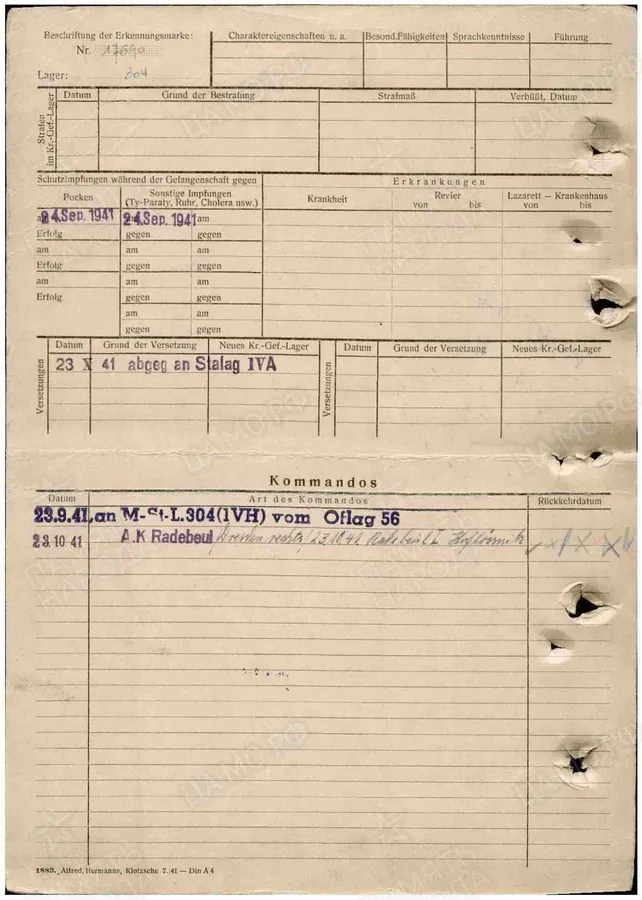 Beschriftung der Erkennungsmarke:
Nr. 17690
Lager: 304
Charaktereigenschaften u. a. Besond. Fähigkeiten Sprachkenntnisse Führung
Strafen im Kr.-Gef.-Lager
Datum Grund der Bestrafung Strafmaß Verbüßt, Datum
Schutzimpfungen während der Gefangenschaft gegen
Erkrankungen
Pocken
Sonstige Impfungen
(Ty-Paraty, Ruhr, Cholera usw.)
Krankheit
Revier
von bis
Lazarett – Krankenhaus
von bis
24. Sep. 1941 24. Sep. 1941 am
Erfolg gegen gegen
am am am
Erfolg gegen gegen
am am am
Erfolg gegen gegen
am am
gegen gegen
Versetzungen
Datum Grund der Versetzung Neues Kr.-Gef.-Lager
23 X 41 abgeg an Stalag IVA
Versetzungen
Datum Grund der Versetzung Neues Kr.-Gef.-Lager
Kommandos
Datum Art des Kommandos Rückkehrdatum
23.9.41. an M-St-L.304(IVH) vom Oflag 56
23.10 41 A.K Radebeul /Dresden rechts/ 23.10.41 Radebeul I Hoflössnitz
1883. Alfred, Hermanns, Klotzsche 7. 41 — Din A 4
ЦАМО.РФ
ПАМЯТЬ НАРОДА